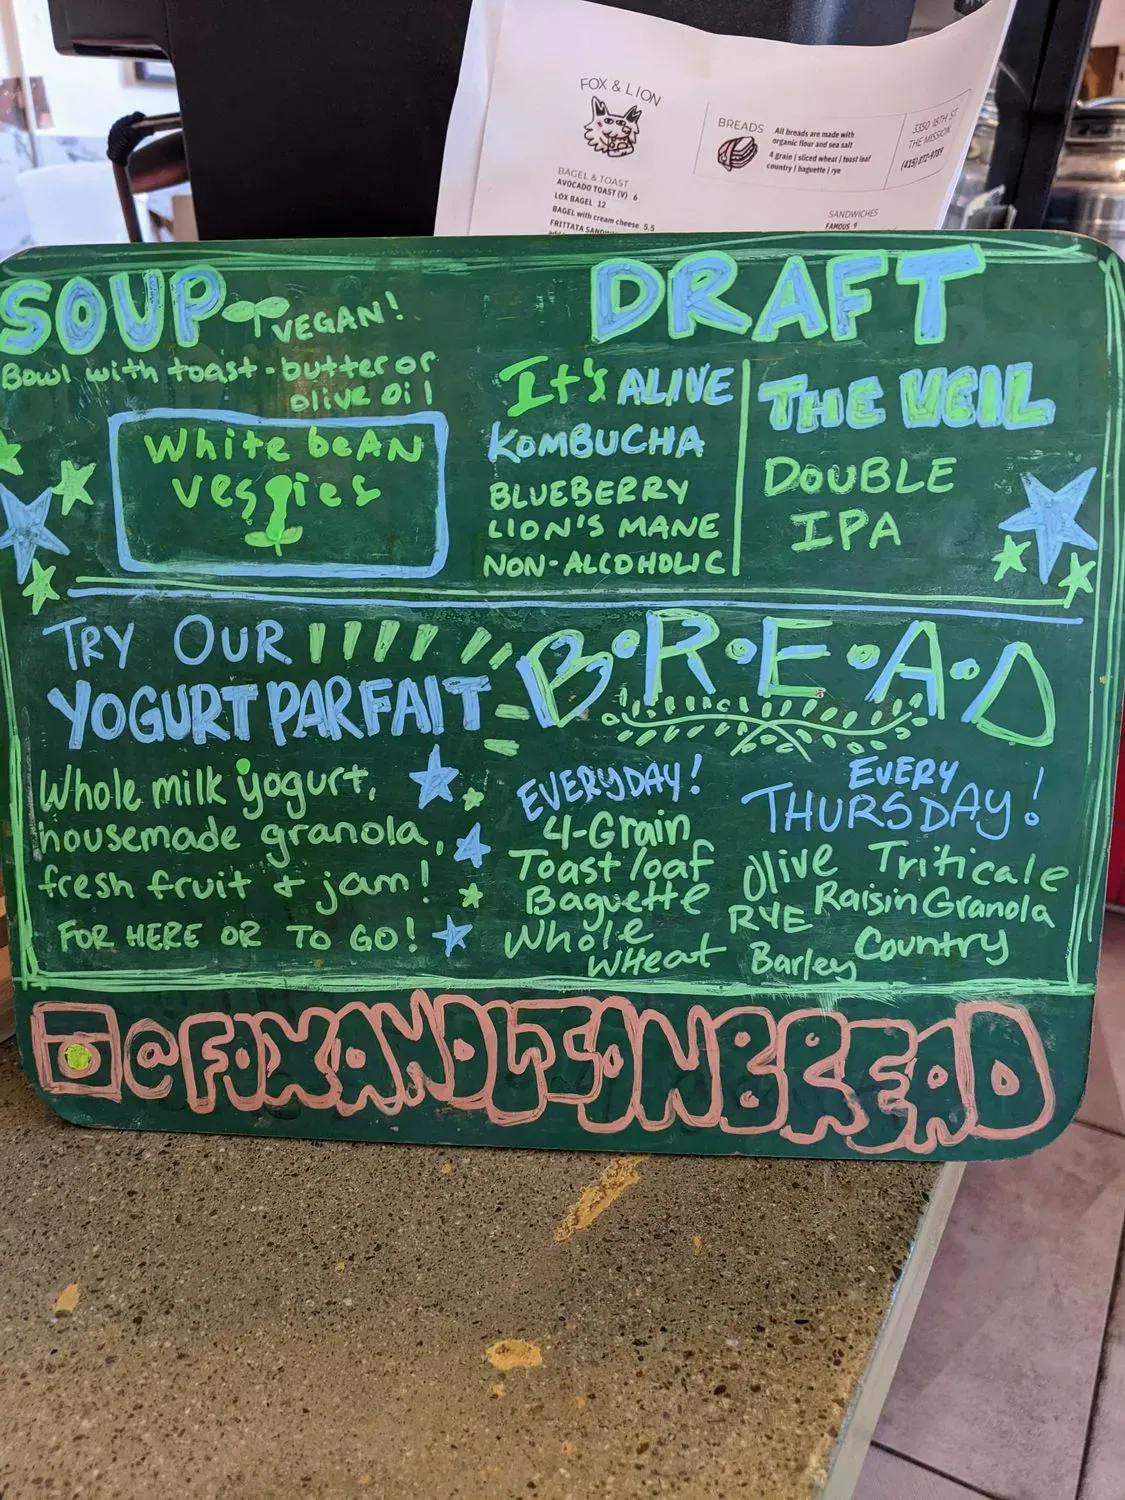 FOX & LION
BREADS
All breads are made with
organic flour and sea salt
4 grain | sliced wheat | toast loaf
country | baguette | rye
3350 18TH ST.
THE MISSION
BAGEL & TOAST
AVOCADO TOAST (V) 6
LOX BAGEL 12
BAGEL with cream cheese 5.5
FRITTATA
SANDWICHES
FAMOUS 9
SOUP VEGAN!
Bowl with toast - butter or
olive oil
White beAN
veggies
DRAFT
It's ALIVE
KOMBUCHA
BLUEBERRY
LION'S MANE
NON-ALCOHOLIC
THE VEIL
DOUBLE
IPA
TRY OUR
YOGURT PARFAIT
Whole milk yogurt,
housemade granola,
fresh fruit + jam!
FOR HERE OR TO GO!
B.R.E.A.D
EVERYDAY!
4-Grain
Toast loaf
Baguette
Whole
WHeat
EVERY
THURSDAY!
Olive Triticale
RYE Raisin Granola
Barley Country
@FOXANDLIONBREAD